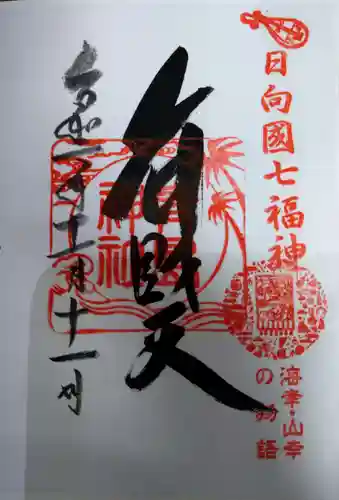 日向國七福神
海幸・山幸
の物語
弁財天
青島
神社
令和 年 月十一日